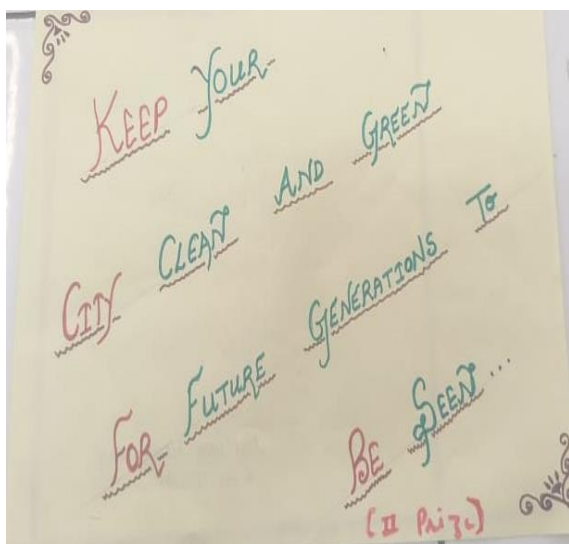 KEEP YOUR
CITY CLEAN AND GREEN
FOR FUTURE GENERATIONS TO
BE SEEN...
(II Prize)